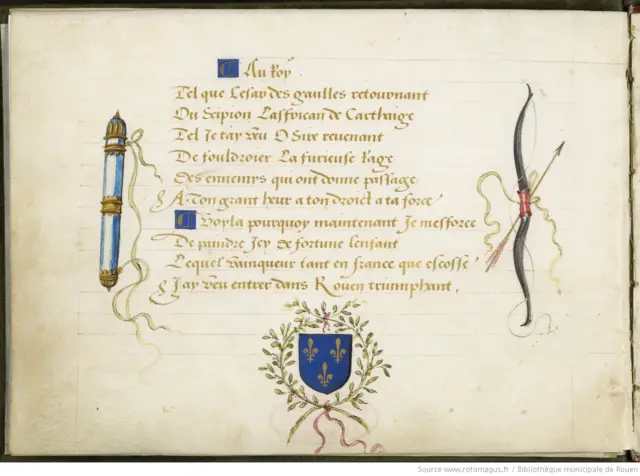 Au Roy.
Tel que Cesar des gaulles retournant
Ou Scipion Laffrican de Carthaige
Tel Je tay veu O Sire revenant
De fouldroier La furieuse Rage
Des ennemys qui ont donne passage
A Ton grant heur a ton droict a ta force
Voyla pourquoy maintenant Je mesforce
De paindre Icy de fortune Lenfant
Lequel vainqueur tant en france que escosse
Jay veu entrer dans Rouen triumphant.
Source www.rotomagus.fr / Bibliothèque municipale de Rouen